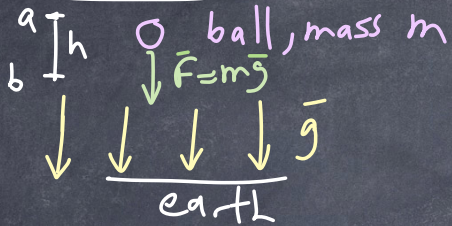 a
h
b
ball, mass m
F̅ = mg̅
g̅
earth